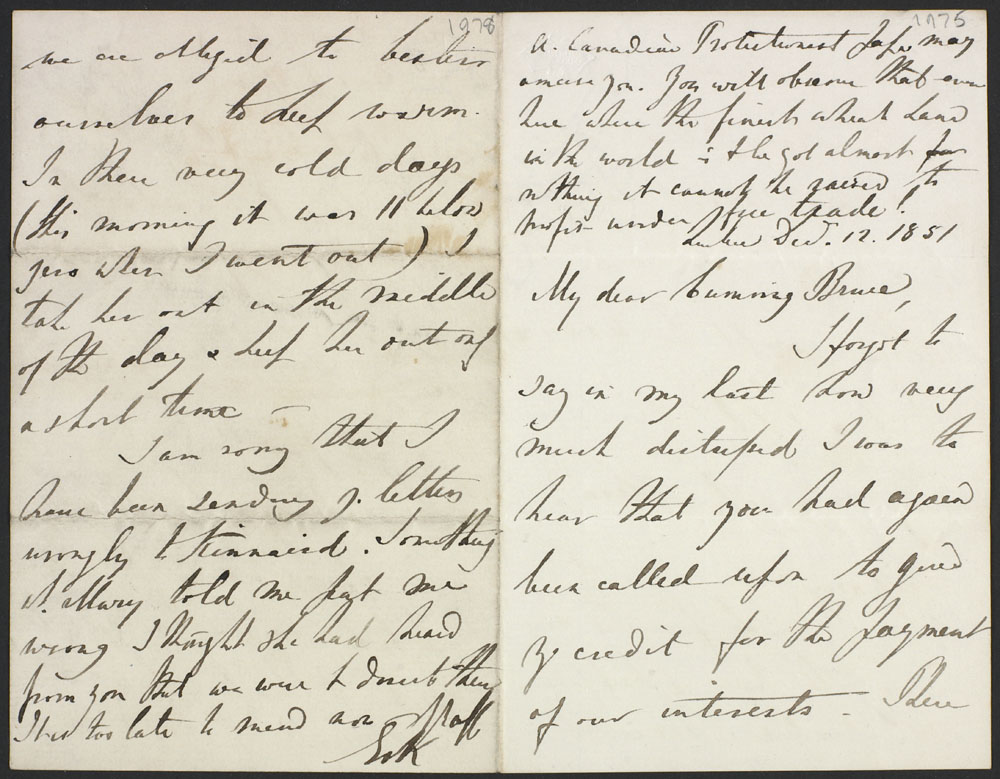 1978
we are obliged to bestir
ourselves to keep warm.
In these very cold days
(this morning it was 11 below
zero when I went out) I
take her out in the middle
of the day & keep her out only
a short time –
I am sorry that I
have been sending yr. letters
wrongly to Kinnaird. Something
Mary told me put me
wrong I thought she had heard
from you that we were to direct them
It is too late to mend now
E&K
1975
A Canadian Protectionist paper may
amuse you. You will observe that even
here where the finest wheat land
in the world is to be got almost for
nothing it cannot be raised to
profit under free trade!
Quebec Dec. 12. 1851
My dear Cumming Bruce,
I forgot to
say in my last how very
much disturbed I was to
hear that you had again
been called upon to give
yr credit for the payment
of our interests –